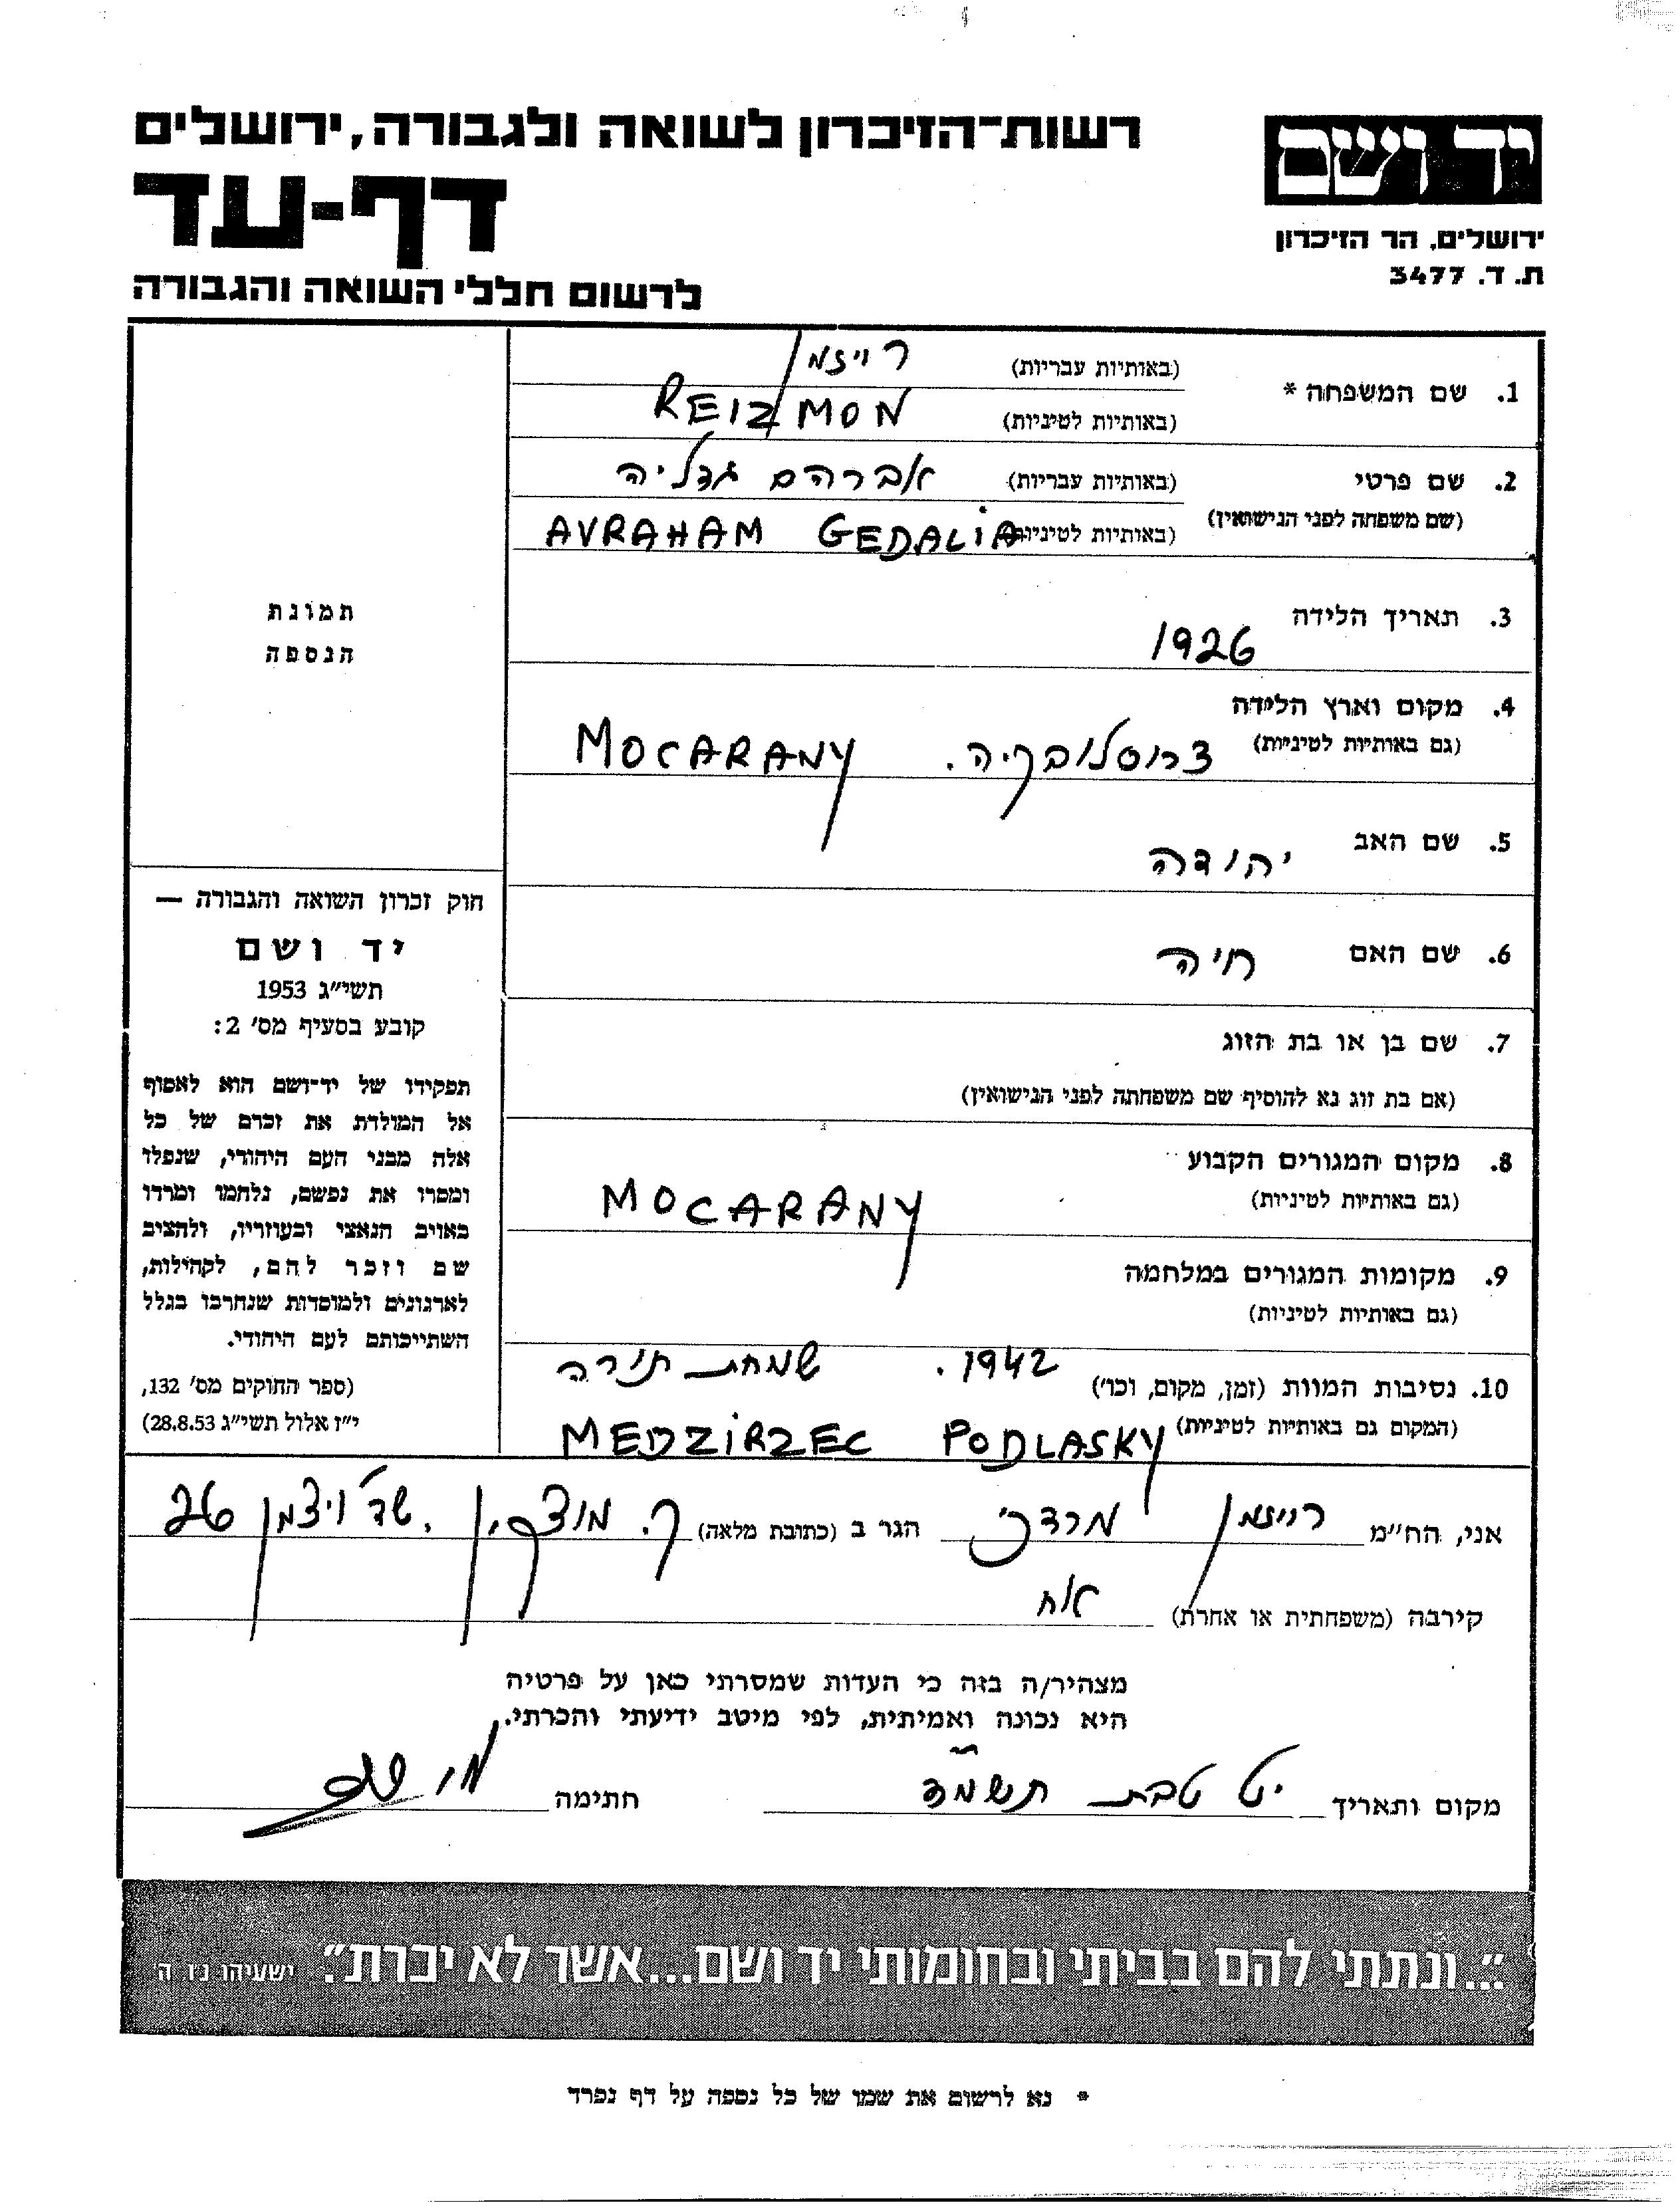 רשות־הזיכרון לשואה ולגבורה, ירושלים
יד ושם
דף-עד
ירושלים, הר הזיכרון
ת. ד. 3477
לרשום חללי השואה והגבורה
1. שם המשפחה * (באותיות עבריות) רייזמן
(באותיות לטיניות) REIZMON
2. שם פרטי (באותיות עבריות) אברהם גדליה
(שם משפחה לפני הנישואין) (באותיות לטיניות) AVRAHAM GEDALIA
3. תאריך הלידה 1926
4. מקום וארץ הלידה
(גם באותיות לטיניות) צ'כוסלובקיה. MOCARANY
5. שם האב יהודה
6. שם האם חיה
7. שם בן או בת הזוג
(אם בת זוג נא להוסיף שם משפחתה לפני הנישואין)
8. מקום המגורים הקבוע
(גם באותיות לטיניות) MOCARANY
9. מקומות המגורים במלחמה
(גם באותיות לטיניות)
10. נסיבות המוות (זמן, מקום, וכו') 1942. שמחת תורה
(המקום גם באותיות לטיניות) MEDZIRZEC PODLASKY
תמונת
הנספה
חוק זכרון השואה והגבורה —
יד ושם
תשי"ג 1953
קובע בסעיף מס' 2:
תפקידו של יד־ושם הוא לאסוף
אל המולדת את זכרם של כל
אלה מבני העם היהודי, שנפלו
ומסרו את נפשם, נלחמו ומרדו
באויב הנאצי ובעוזריו, ולהציב
שם וזכר להם, לקהילות,
לארגונים ולמוסדות שנחרבו בגלל
השתייכותם לעם היהודי.
(ספר החוקים מס' 132,
י"ז אלול תשי"ג 28.8.53)
אני, הח"מ רייזמן מרדכי הגר ב (כתובת מלאה) ק. מוצקין, שד' ויצמן 26
קירבה (משפחתית או אחרת) אח
מצהיר/ה בזה כי העדות שמסרתי כאן על פרטיה
היא נכונה ואמיתית, לפי מיטב ידיעתי והכרתי.
מקום ותאריך יט טבת חתימה
"...ונתתי להם בביתי ובחומותי יד ושם...אשר לא יכרת". ישעיהו נ"ו ה'
* נא לרשום את שמו של כל נספה על דף נפרד